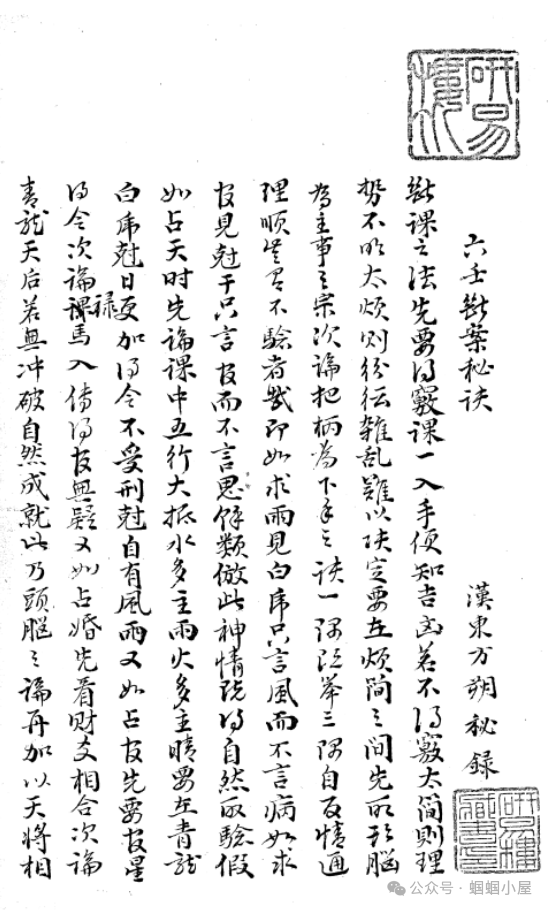 研易樓
六壬斷案秘訣
漢東方朔秘錄
斷課之法先要得竅課一入手便知吉凶若不得竅太簡則理
勢不明太煩則紛紜雜乱難以決定要在煩簡之間先取頭腦
為主事之宗次論把柄為下手之訣一隅既举三隅自反情通
理順豈有不驗者哉即如求雨見白虎只言風而不言病如求
官見尅干只言官而不言鬼餘類倣此神情既得自然取驗假
如占天时先論課中五行大抵水多主雨火多主晴要在青龍
白虎尅日更加得令不受刑尅自有風雨又如占官先要官星
得令次論祿馬入傳得官無疑又如占婚先看財爻相合次論
青龍天后若無冲破自然成就此乃頭腦之論再加以天將相
研易樓藏書
公众号·蝈蝈小屋